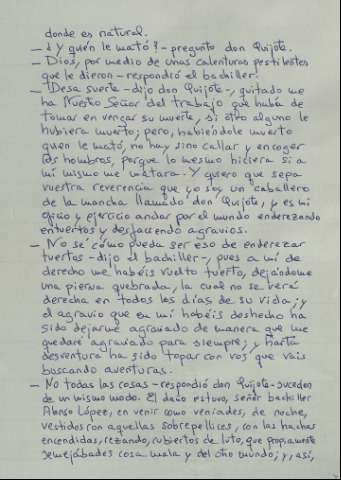 donde es natural.
— ¿Y quén le mató? – pregunto don Quijote.
— Dios, por medio de unas calenturas pestilentes
que le dieron – respondió el bachiller.
— Desa suerte – dijo don Quijote –, quitado me
ha Nuestro Señor del trabajo que había de
tomar en vengar su muerte, si otro alguno le
hubiera muerto; pero, habiéndole muerto
quen le mató, no hay sino callar y encoger
los hombros, porque lo mesmo hiciera si a
mí mismo me matara. Y quiero que sepa
vuestra reverencia que yo soy un caballero
de la mancha llamado don Quijote, y es mi
oficio y ejercicio andar por el mundo enderezando
entuertos y desfaciendo agravios.
— No sé cómo pueda ser eso de enderezar
tuertos – dijo el bachiller –, pues a mí de
derecho me habéis vuelto tuerto, dejándome
una pierna quebrada, la cual no se verá
derecha en todos los días de su vida; y
el agravio que en mí habéis deshecho ha
sido dejarme agraviado de manera que me
quedaré agraviado para siempre; y harta
desventura ha sido topar con vos que vais
buscando aventuras.
— No todas las cosas – respondió don Quijote – suceden
de un mismo modo. El daño estuvo, señor bachiller
Alonso López, en venir como veniades, de noche,
vestidos con aquellas sobrepellices, con las hachas
encendidas, rezando, cubiertos de luto, que propiamente
semejábades cosa mala y del otro mundo; y, así,